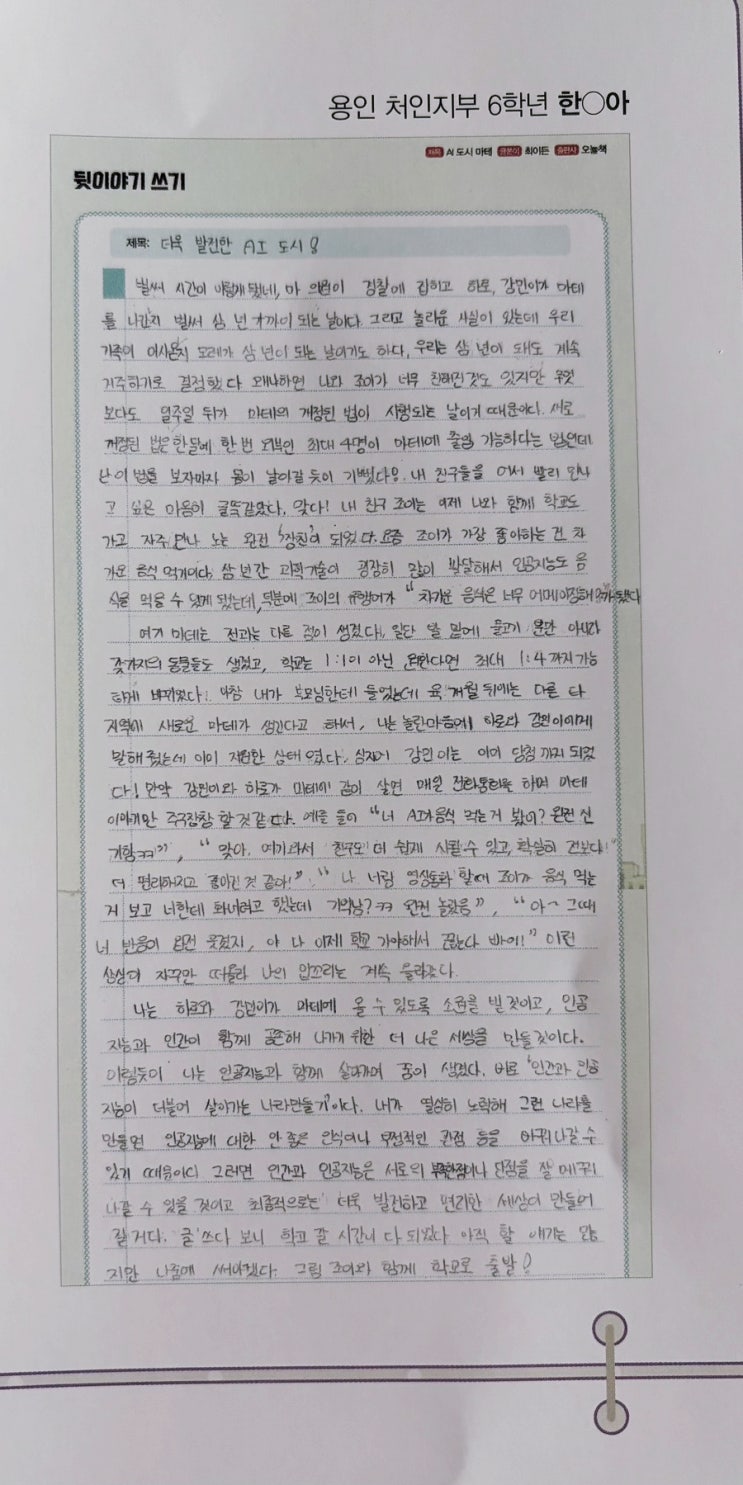 용인 처인지부 6학년 한○아
제목 AI 도시 마테 글쓴이 최이든 출판사 오늘책
뒷이야기 쓰기
제목: 더욱 발전한 AI 도시!
벌써 시간이 이렇게 됐네, 마 의원이 경찰에 잡히고 하로, 강민이가 마테
를 나간지 벌써 삼 년 가까이 되는 날이다. 그리고 놀라운 사실이 있는데 우리
가족이 이사온지 모레가 삼 년이 되는 날이기도 하다. 우리는 삼 년이 돼도 계속
거주하기로 결정했다 왜냐하면 나와 조이가 너무 친해진 것도 있지만 무엇
보다도 일주일 뒤가 마테의 개정된 법이 시행되는 날이기 때문이다. 새로
개정된 법은 한 달에 한 번 외부인 최대 4명이 마테에 출입 가능하다는 법인데
난 이 법을 보자마자 몸이 날아갈 듯이 기뻤다! 내 친구들을 어서 빨리 만나
고 싶은 마음이 굴뚝같았다. 맞다! 내 친구 조이는 이제 나와 함께 학교도
가고 자주 만나 노는 완전 '찐친'이 되었다. 요즘 조이가 가장 좋아하는 건 차
가운 음식 먹기이다. 삼 년간 과학기술이 굉장히 많이 발달해서 인공지능도 음
식을 먹을 수 있게 됐는데, 덕분에 조이의 유행어가 "차가운 음식은 너무 어메이징해!"가 됐다
여기 마테는 전과는 다른 점이 생겼다. 일단 발 밑에 물고기 뿐만 아니라
갖가지의 동물들도 생겼고, 학교는 1:1이 아닌 원한다면 최대 1:4까지 가능
하게 바뀌었다. 아참 내가 부모님한테 들었는데 육 개월 뒤에는 다른 타
지역에 새로운 마테가 생긴다고 해서, 나는 놀란 마음에 하로와 강민이에게
말해 줬는데 이미 지원한 상태였다. 심지어 강민이는 이미 당첨까지 되었
다! 만약 강민이와 하로가 마테에 같이 살면 매일 전화통화를 하며 마테
이야기만 주구장창 할 것 같다. 예를 들어 "너 AI가 음식 먹는거 봤어? 완전 신
기함ㅋㅋ", "맞아. 여기 와서 친구도 더 쉽게 사귈 수 있고, 확실히 전보다
더 편리해지고 좋아진 것 같아!", "나 너랑 영상통화 할 때 조이가 음식 먹는
거 보고 너한테 화내려고 했는데 기억남?ㅋㅋ 완전 놀랐음", "아~ 그때
너 반응이 완전 웃겼지, 야 나 이제 학교 가야해서 끊는다 바이!" 이런
상상이 자꾸만 떠올라 나의 입꼬리는 계속 올라갔다.
나는 하로와 강민이가 마테에 올 수 있도록 소원을 빌 것이고, 인공
지능과 인간이 함께 공존해 나가기 위한 더 나은 세상을 만들 것이다.
이렇듯이 나는 인공지능과 함께 살아가며 꿈이 생겼다. 바로 '인간과 인공
지능이 더불어 살아가는 나라만들기'이다. 내가 열심히 노력해 그런 나라를
만들면 인공지능에 대한 안 좋은 인식이나 부정적인 관점 등을 바꿔나갈 수
있기 때문이다 그러면 인간과 인공지능은 서로의 부족한점이나 단점을 잘 메꿔
나갈 수 있을 것이고 최종적으로는 더욱 발전하고 편리한 세상이 만들어
질 거다. 글 쓰다 보니 학교 갈 시간이 다 되었다 아직 할 얘기는 많
지만 나중에 써야겠다. 그럼 조이와 함께 학교로 출발!